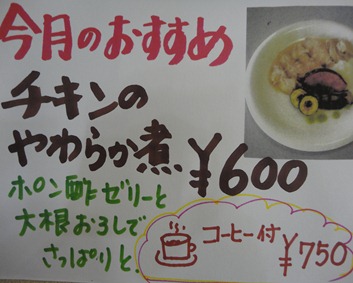 今月のおすすめ
チキンの
やわらか煮 ¥600
ポン酢ゼリーと
大根おろしで
さっぱりと.
コーヒー付 ¥750